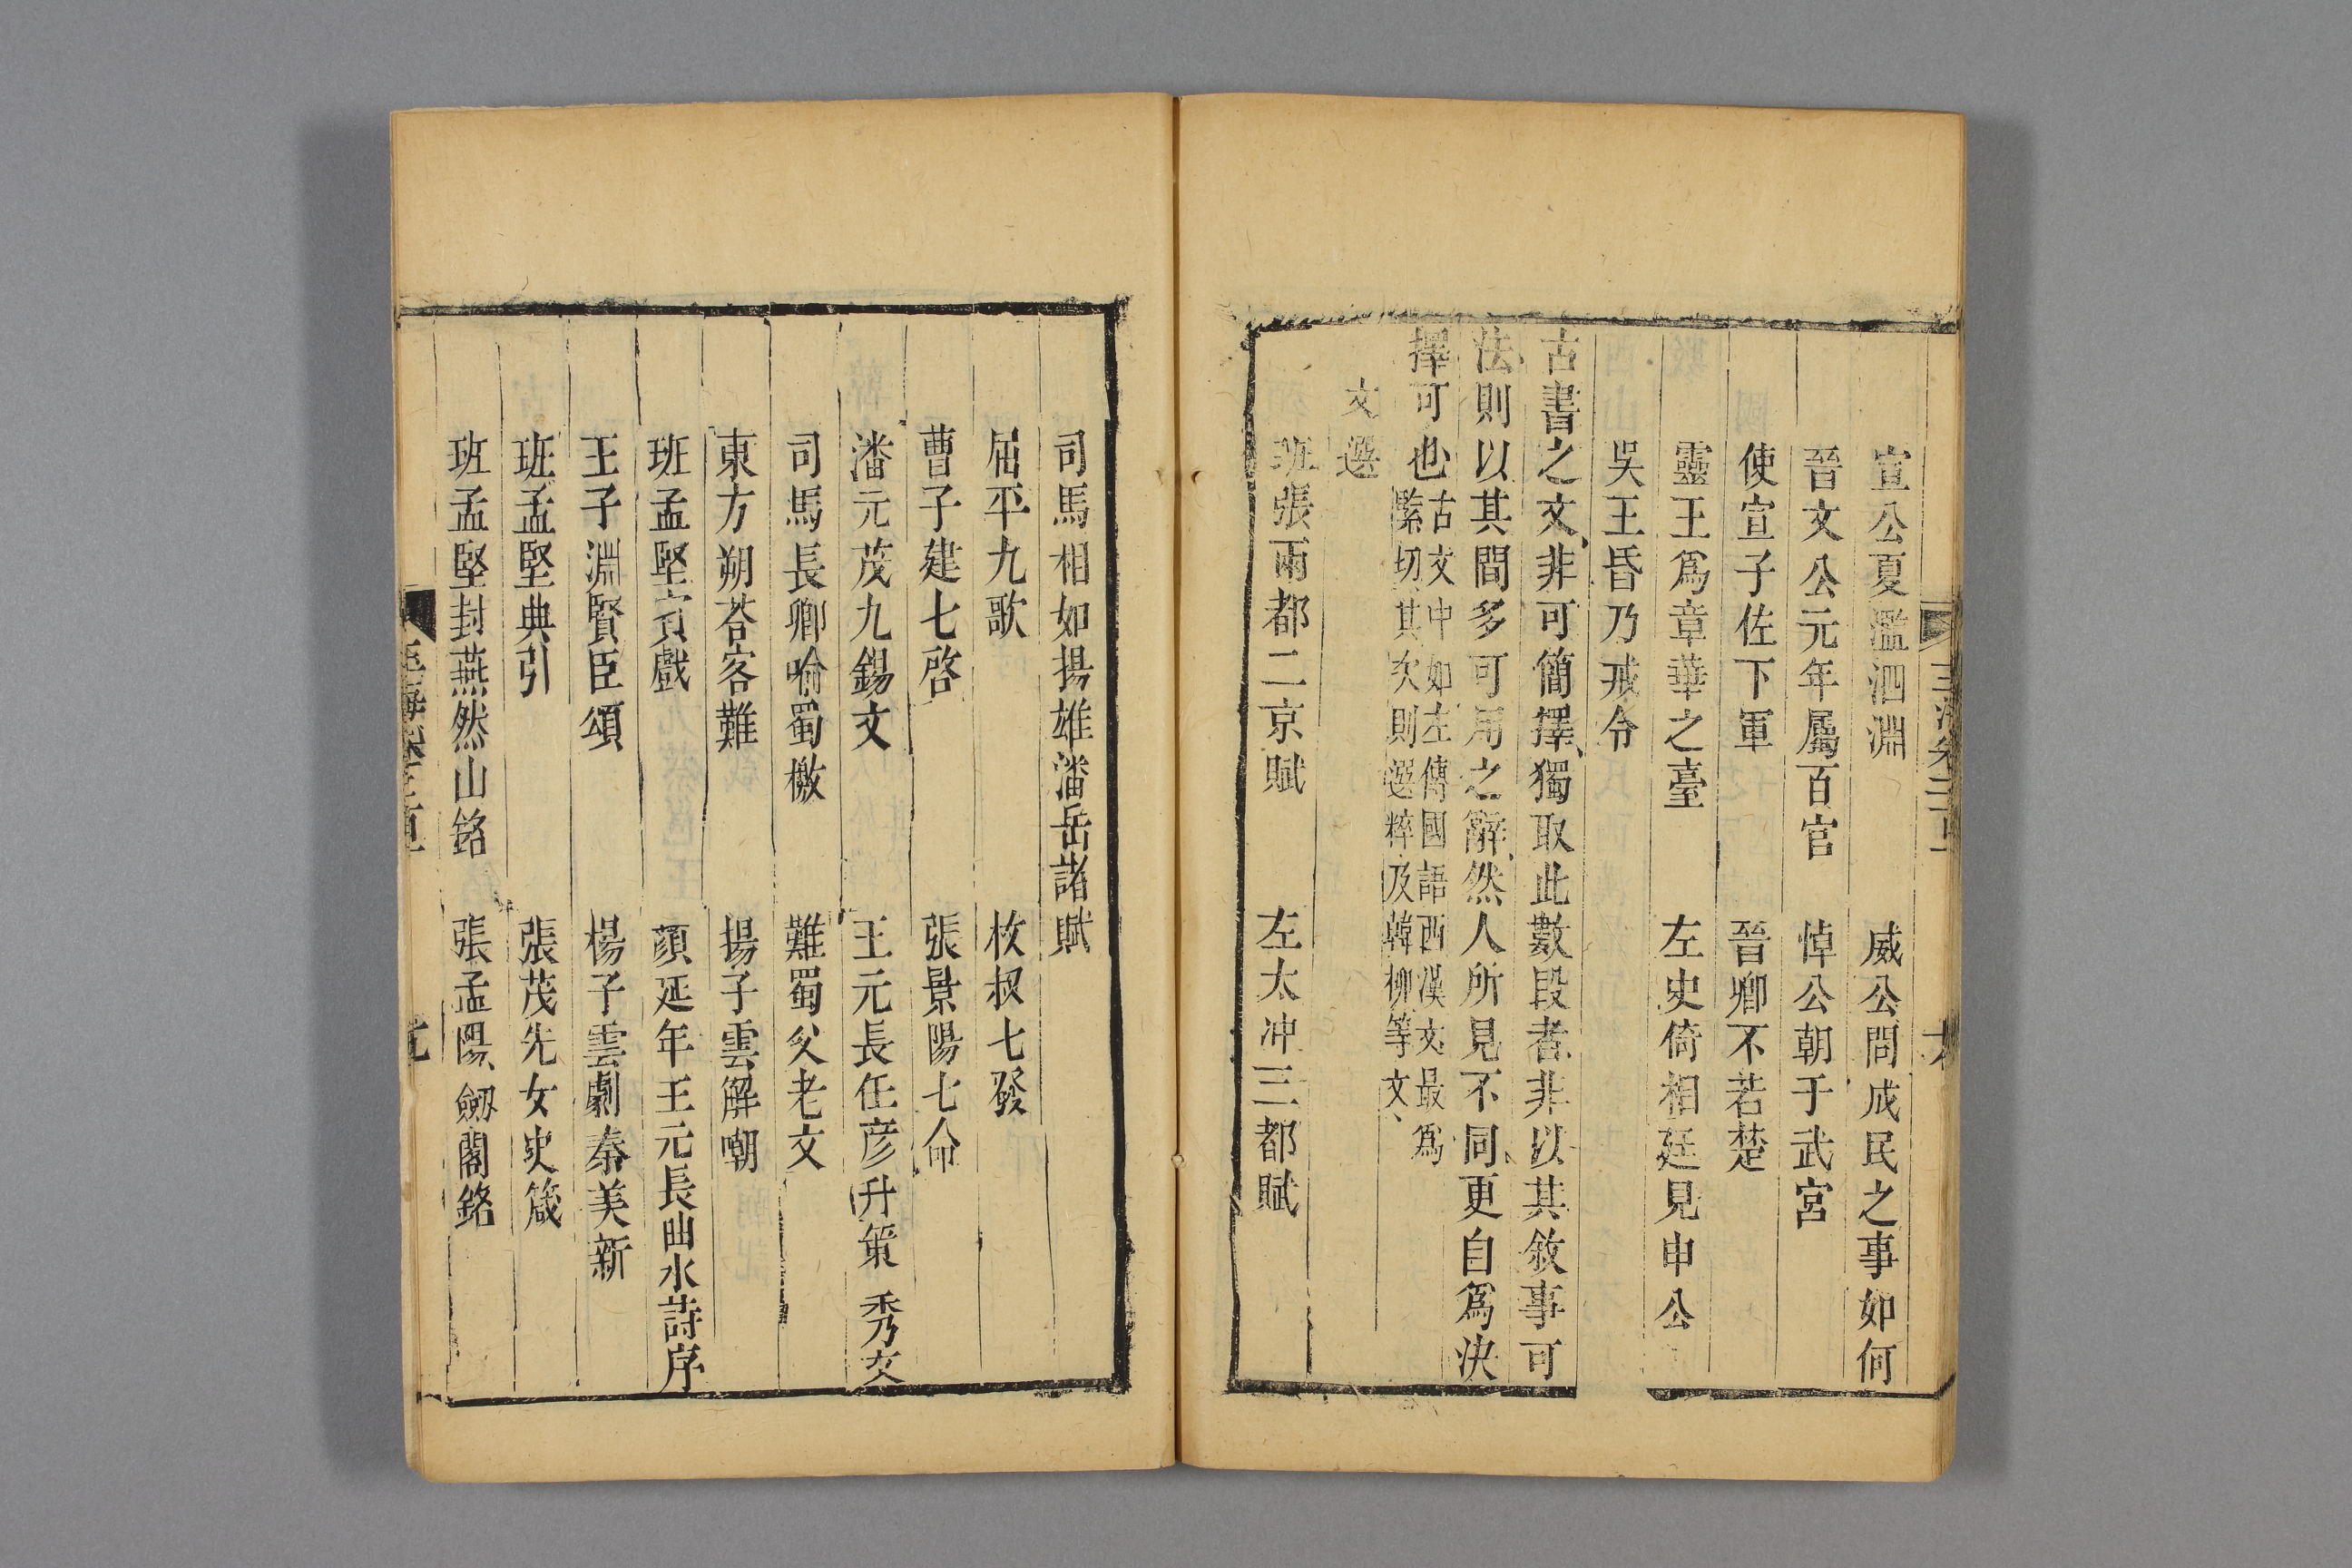 宣公夏濫泗淵　威公問成民之事如何
晉文公元年屬百官　悼公朝于武宮
使宣子佐下軍　晉卿不若楚
靈王爲章華之臺　左史倚相廷見申公
吳王昏乃戒令
古書之文非可簡擇獨取此數段者非以其敘事可
法則以其間多可用之辭然人所見不同更自爲決
擇可也古文中如左傳國語西漢文最爲
緊切其次則選粹及韓柳等文
文選
班張兩都二京賦　左太冲三都賦
司馬相如揚雄潘岳諸賦
屈平九歌　枚叔七發
曹子建七啓　張景陽七命
潘元茂九錫文　王元長任彦升策秀文
司馬長卿喻蜀檄　難蜀父老文
東方朔荅客難　揚子雲解嘲
班孟堅賓戲　顔延年王元長曲水詩序
王子淵賢臣頌　楊子雲劇秦美新
班孟堅典引　張茂先女史箴
班孟堅封燕然山銘　張孟陽劒閣銘